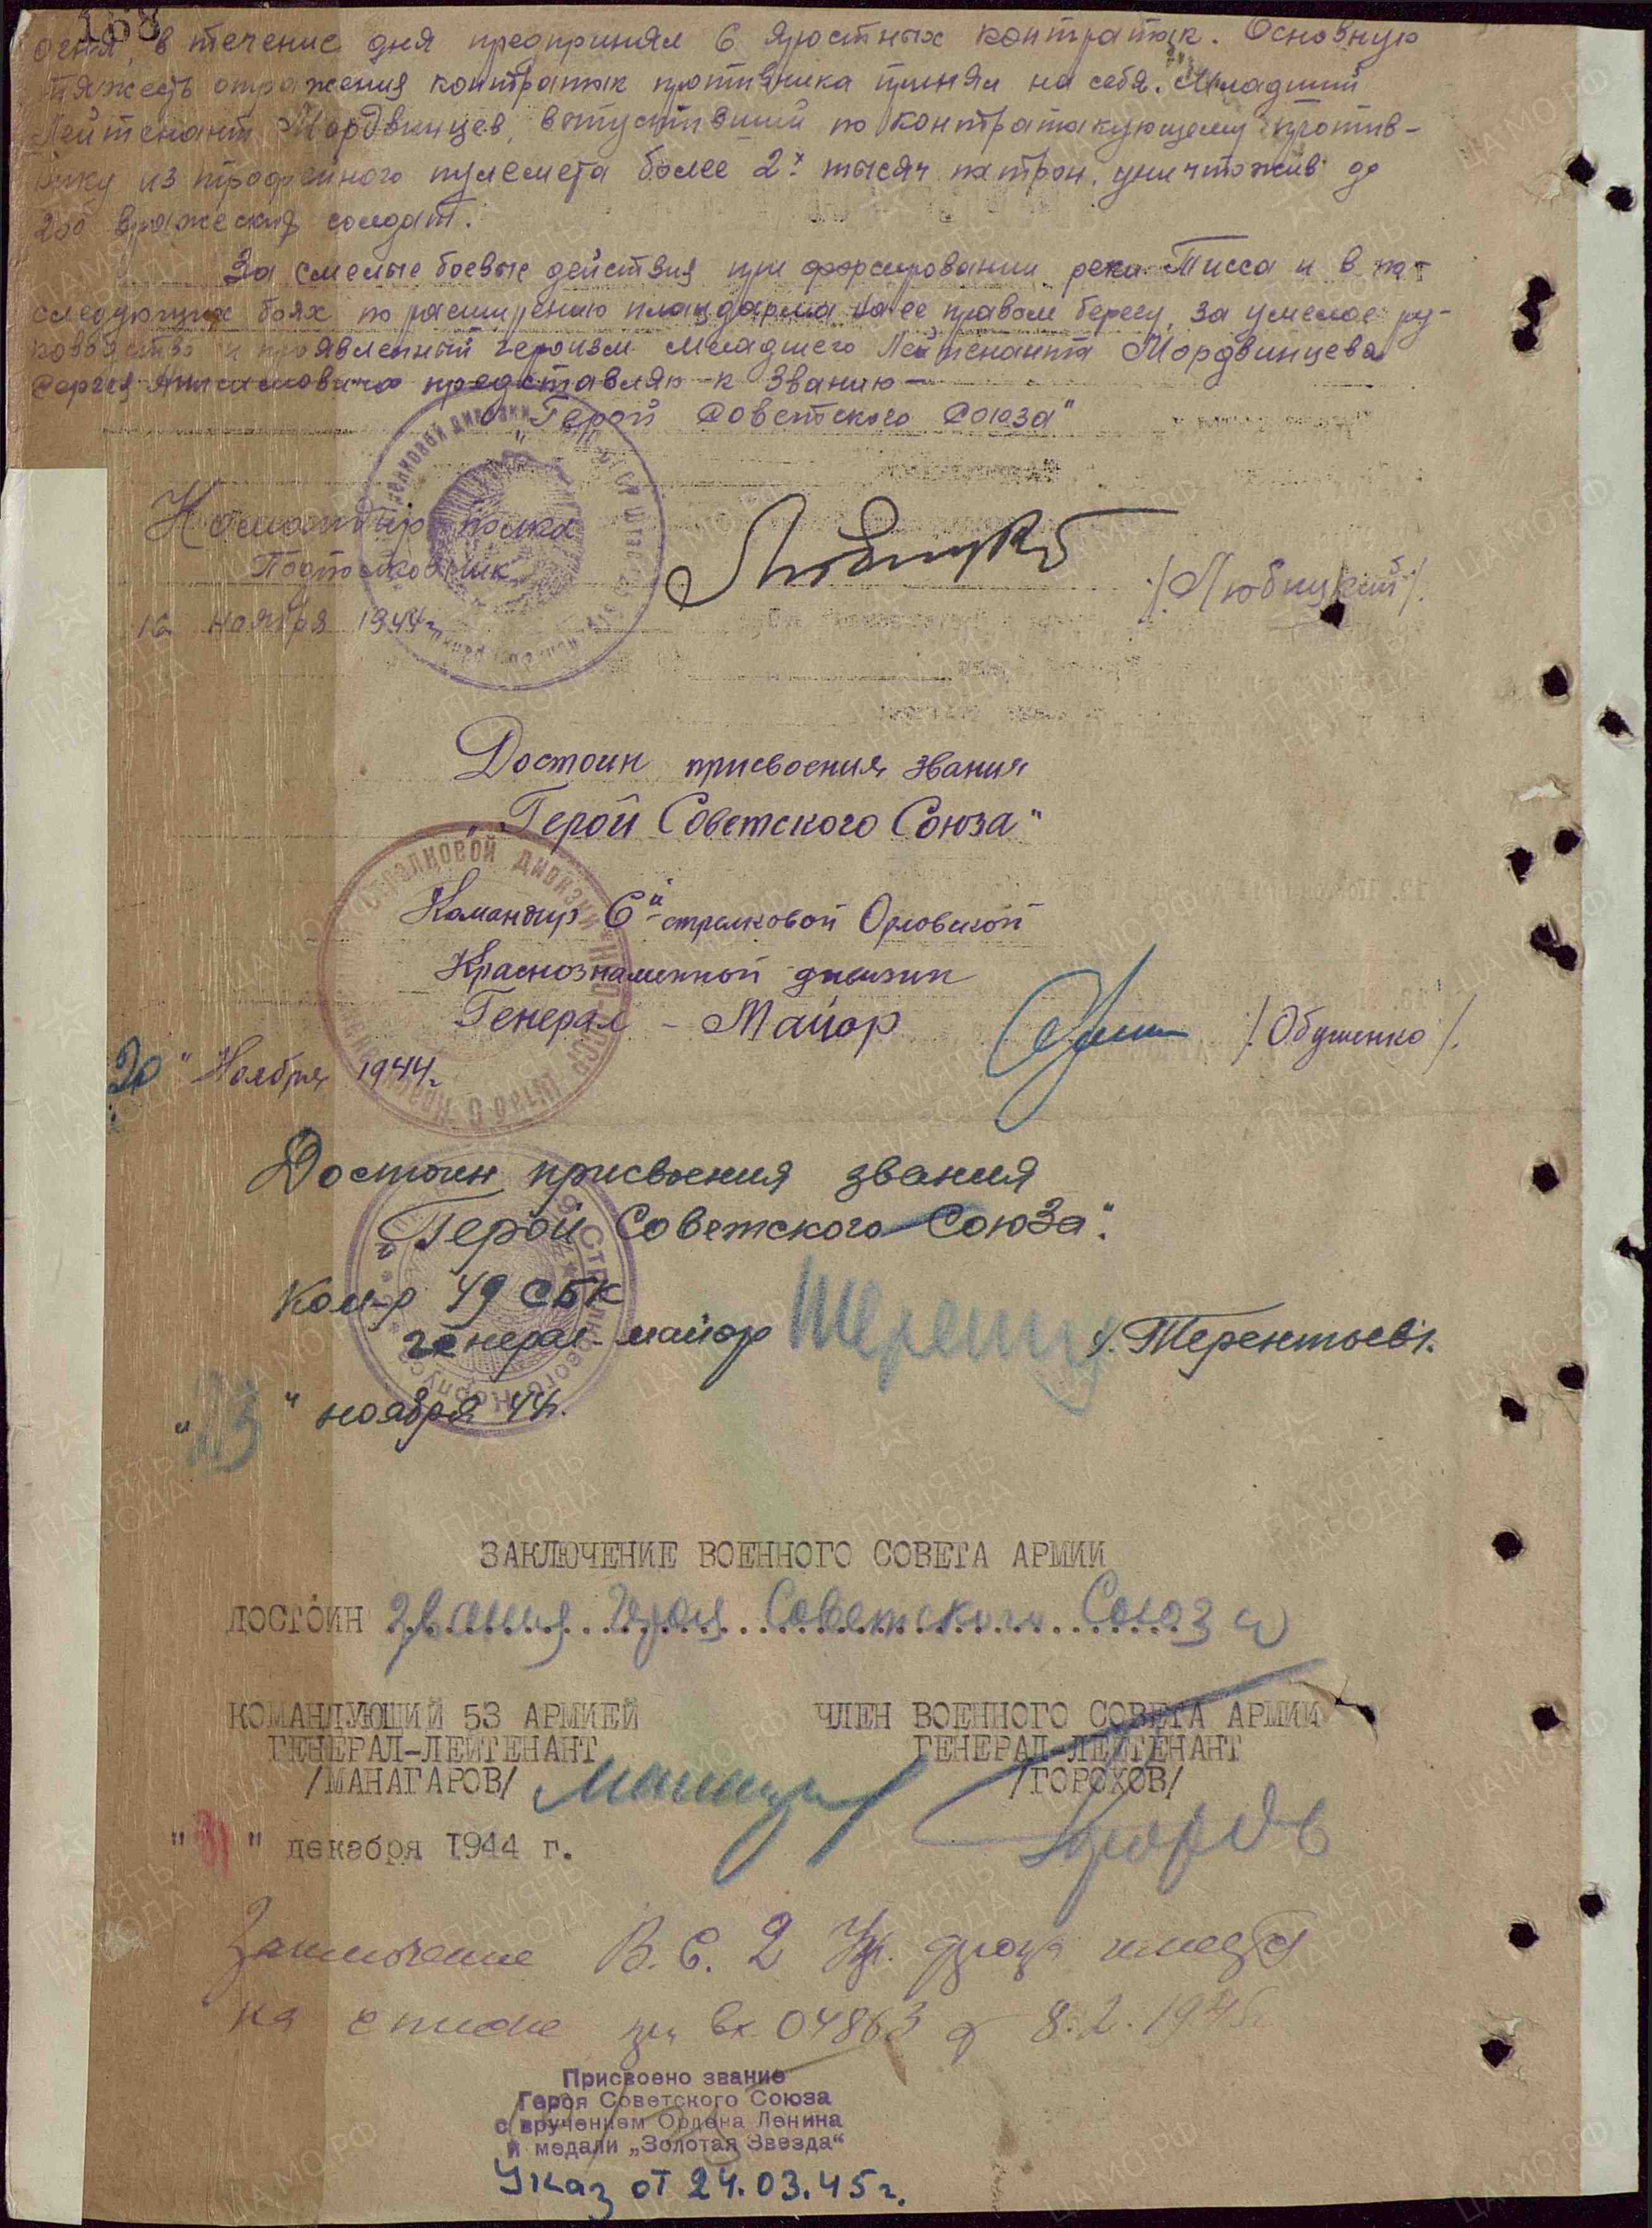 168
огня, в течение дня предпринял 6 яростных контратак. Основную
тяжесть отражения контратак противника принял на себя. Младший
Лейтенант Мордвинцев, выпустивший по контратакующему против-
нику из трофейного пулемета более 2х тысяч патрон, уничтожив до
200 вражеских солдат.
За смелые боевые действия при форсировании реки Тисса и в по-
следующих боях по расширению плацдарма на ее правом берегу, за умелое ру-
ководство и проявленный героизм младшего Лейтенанта Мордвинцева
Сергея представляю к званию—
„Герой Советского Союза"
Командир полка
Подполковник /Любицкий/.
16 ноября 1944 г.
Достоин присвоения звания
„Герой Советского Союза"
Командир 6й стрелковой Орловской
Краснознаменной дивизии
Генерал - Майор /Обушенко/.
20" Ноября 1944 г.
Достоин присвоения звания
„Герой Советского Союза".
Ком-р 49 СБК
генерал-майор /.Терентьев/.
"23" ноября 44 г.
ЗАКЛЮЧЕНИЕ ВОЕННОГО СОВЕТА АРМИИ
ДОСТОИН звания Героя Советского Союза
КОМАНДУЮЩИЙ 53 АРМИЕЙ ЧЛЕН ВОЕННОГО СОВЕТА АРМИИ
ГЕНЕРАЛ-ЛЕЙТЕНАНТ ГЕНЕРАЛ-ЛЕЙТЕНАНТ
/МАНАГАРОВ/ /ГОРОХОВ/
"31" декабря 1944 г.
Заключение В.С. 2 Укр. фронта имеется
на списке при вх. 04863 от 8.2.1945г
Присвоено звание
Героя Советского Союза
с вручением Ордена Ленина
и медали „Золотая Звезда"
Указ от 24.03.45 г.